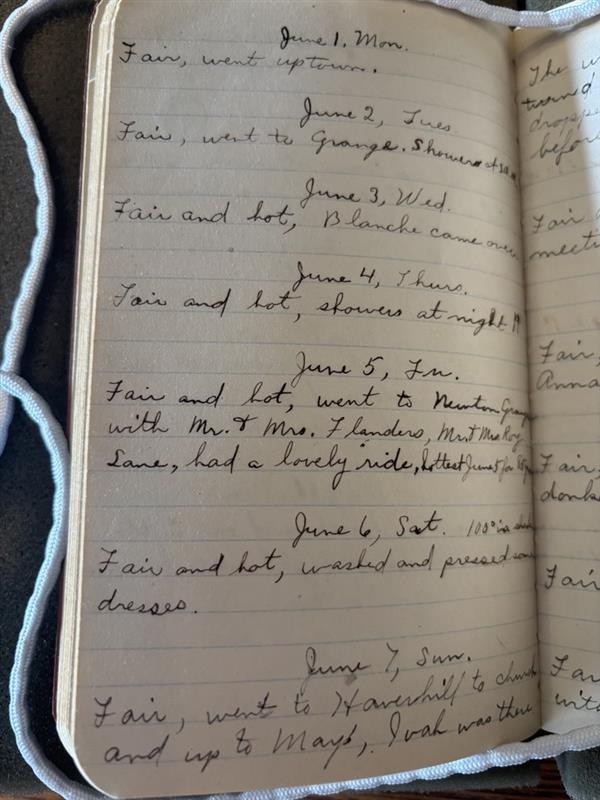 June 1, Mon.
Fair, went uptown.
June 2, Tues.
Fair, went to Grange. Showers at
June 3, Wed.
Fair and hot, Blanche came over
June 4, Thurs.
Fair and hot, showers at night
June 5, Fri.
Fair and hot, went to Newton Grange
with Mr. & Mrs. Flanders, Mr. & Mrs. Roy
Lane, had a lovely ride, hottest June 5 for
June 6, Sat. 100° in
Fair and hot, washed and pressed some
dresses.
June 7, Sun.
Fair, went to Haverhill to church
and up to May's, Ivah was there
The w
turned
droppe
before
Fair a
meeti
Fair,
Anna
Fair,
donk
Fair
Fai